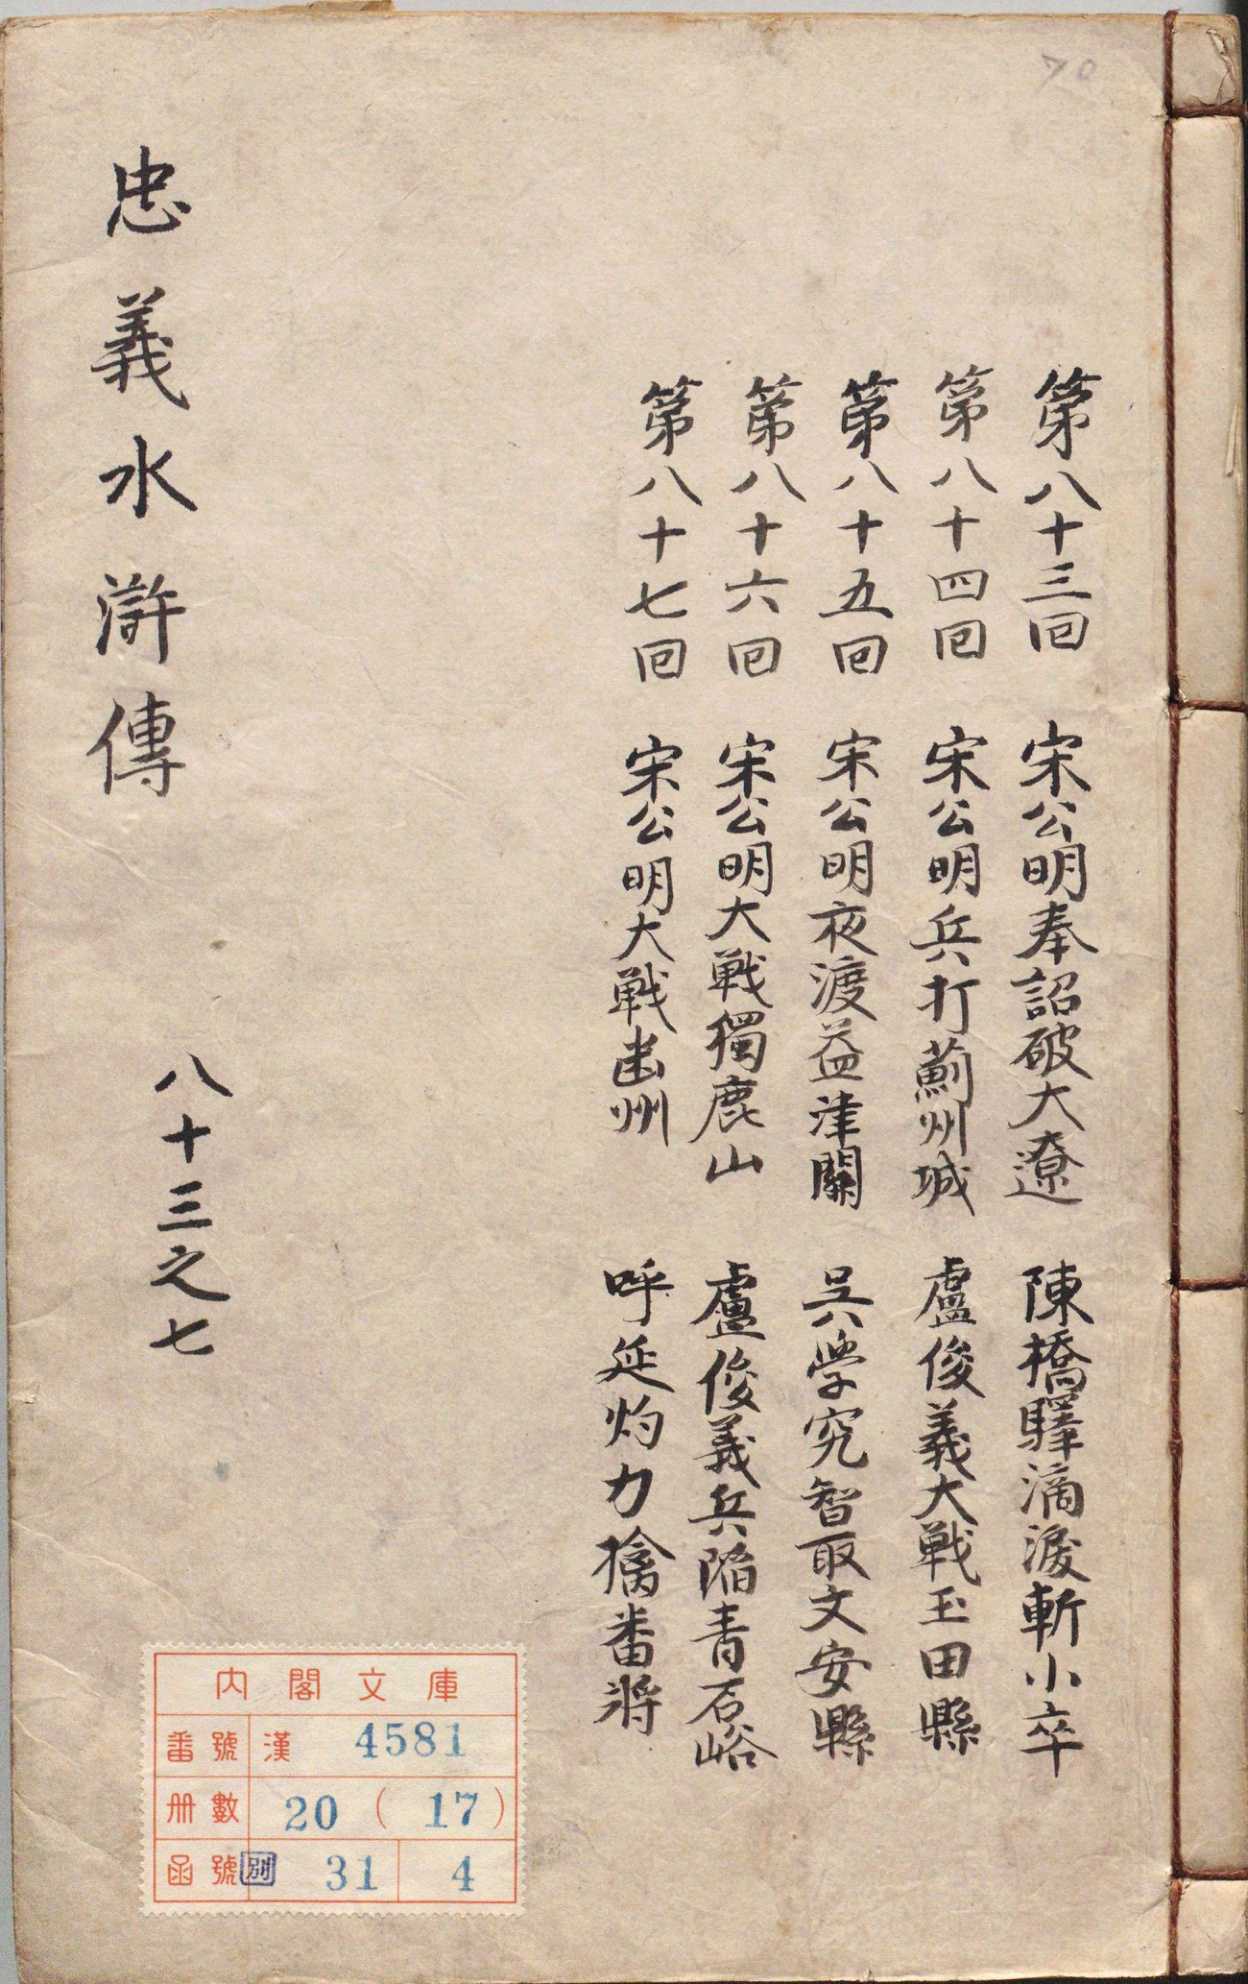 第八十三回 宋公明奉詔破大遼 陳橋驛滴淚斬小卒
第八十四回 宋公明兵打薊州城 盧俊義大戦玉田縣
第八十五回 宋公明夜渡益津關 吳学究智取文安縣
第八十六回 宋公明大戦獨鹿山 盧俊義兵陷青石峪
第八十七回 宋公明大戦幽州 呼延灼力擒番将
忠義水滸傳 八十三之七
70
內閣文庫
番號 漢 4581
冊數 20 (17)
函號 別 31 4